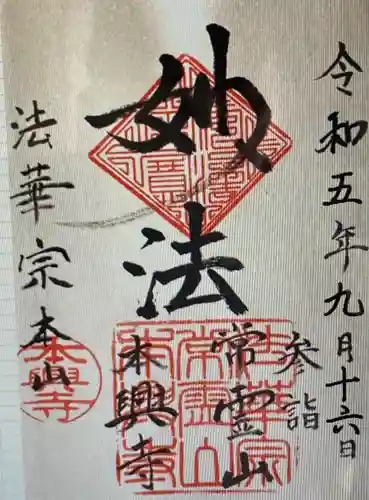 令和五年九月十六日
参詣
妙法
常霊山
本興寺
法華宗本山
本興寺